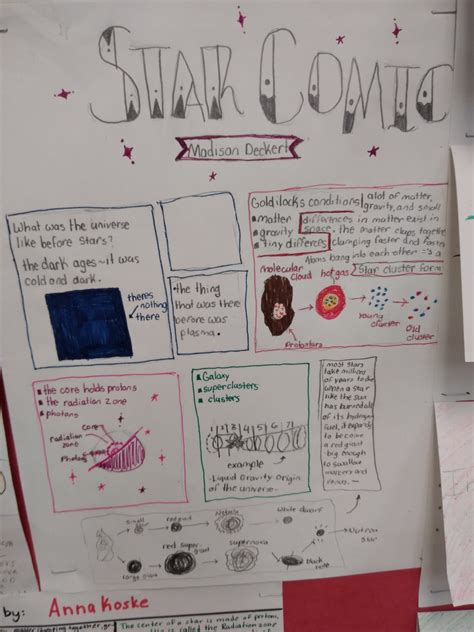 STAR COMIC
Madison Deckert
What was the universe
like before stars?
the dark ages - it was
cold and dark.
there's
nothing
there
the thing
that was there
before was
plasma.
Goldilocks conditions
matter
gravity
tiny differences
alot of matter,
gravity, and small
differences in matter exist in
space. the matter claps together
clumping faster and faster
Atoms bang into each other
Star cluster form
Molecular
cloud
hot gas
Young
cluster
Old
cluster
Protostars
the core holds protons
the radiation zone
photons
core
radiation
zone
Photon
Galaxy
superclusters
clusters
1 2 3 4 5 6 7
example
Liquid Gravity Origin
of the universe
most stars
take millions
of years to die
when a star
like the sun
has burned all
of its hydrogen
fuel, it expands
to become
a red giant
big enough
to swallow
mercury and
venus.
small
red giant
nebula
white dwarf
red super
giant
supernova
Neutron
star
Large stars
black
hole
by: Anna Koske
The center of a star is made of protons,
is called the Radiation zone